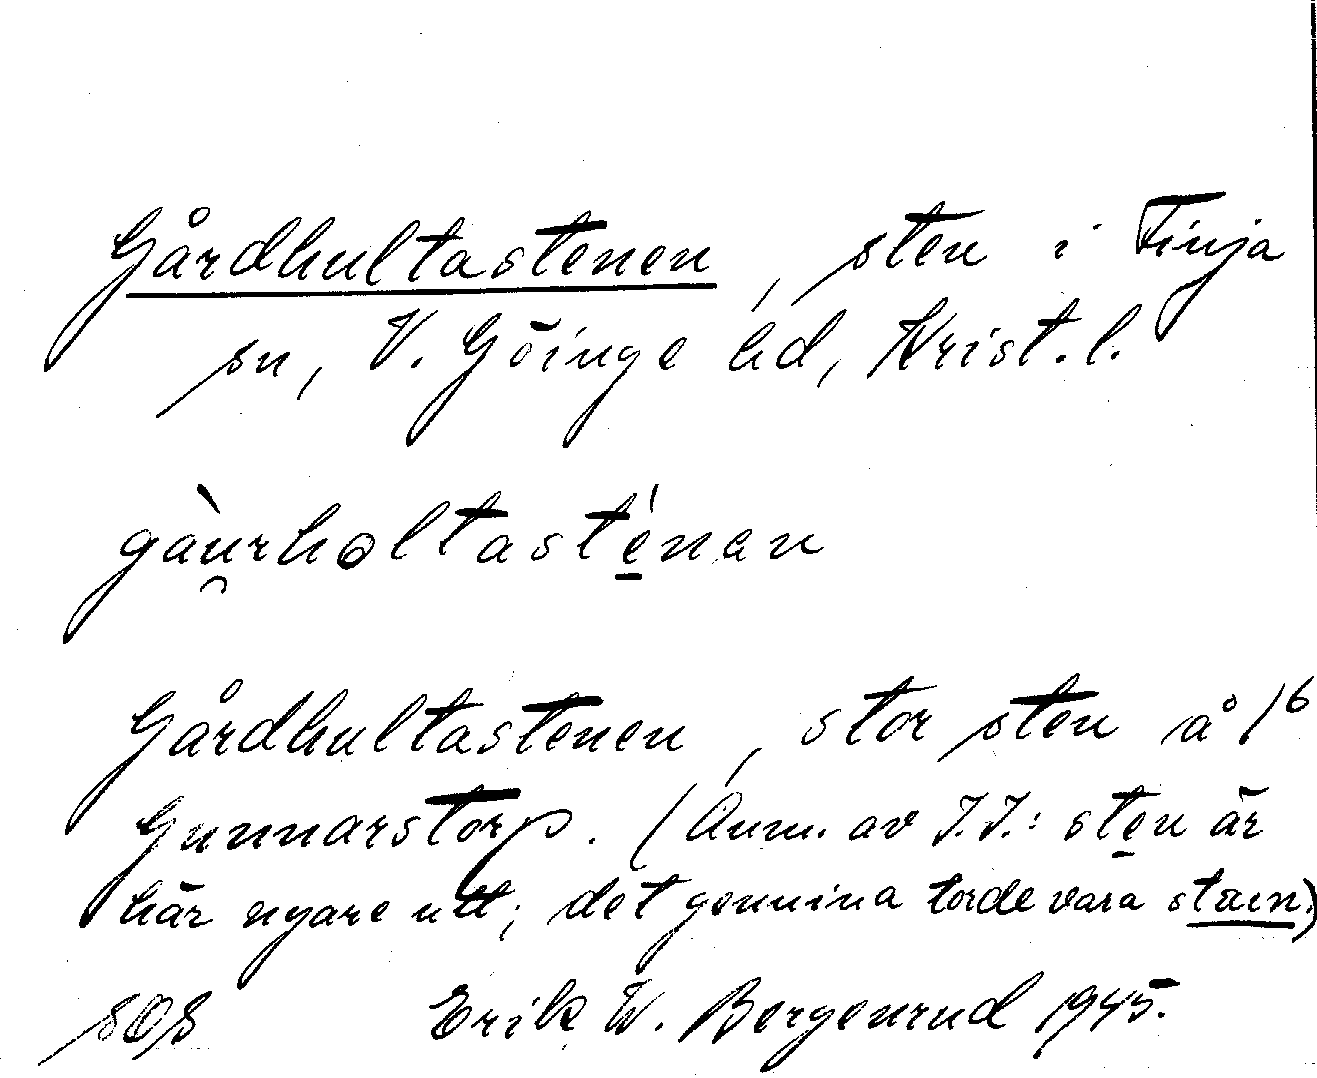 Gårdhultastenen, sten i Finja
sn, V. Göinge hd, Krist. l.
gàu̯rhɵltasté̱nan
Gårdhultastenen, stor sten å 1⁶
Gunnarstorp. (Anm. av J.J.: ste̱n är
här nyare utt; det genuina torde vara stain.)
SOS Erik W. Bergenrud 1945.